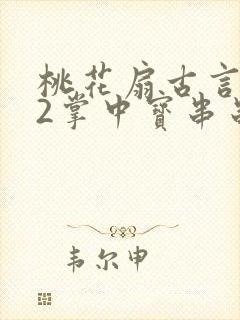 桃花扇古言
2掌中寶串
韦尔申